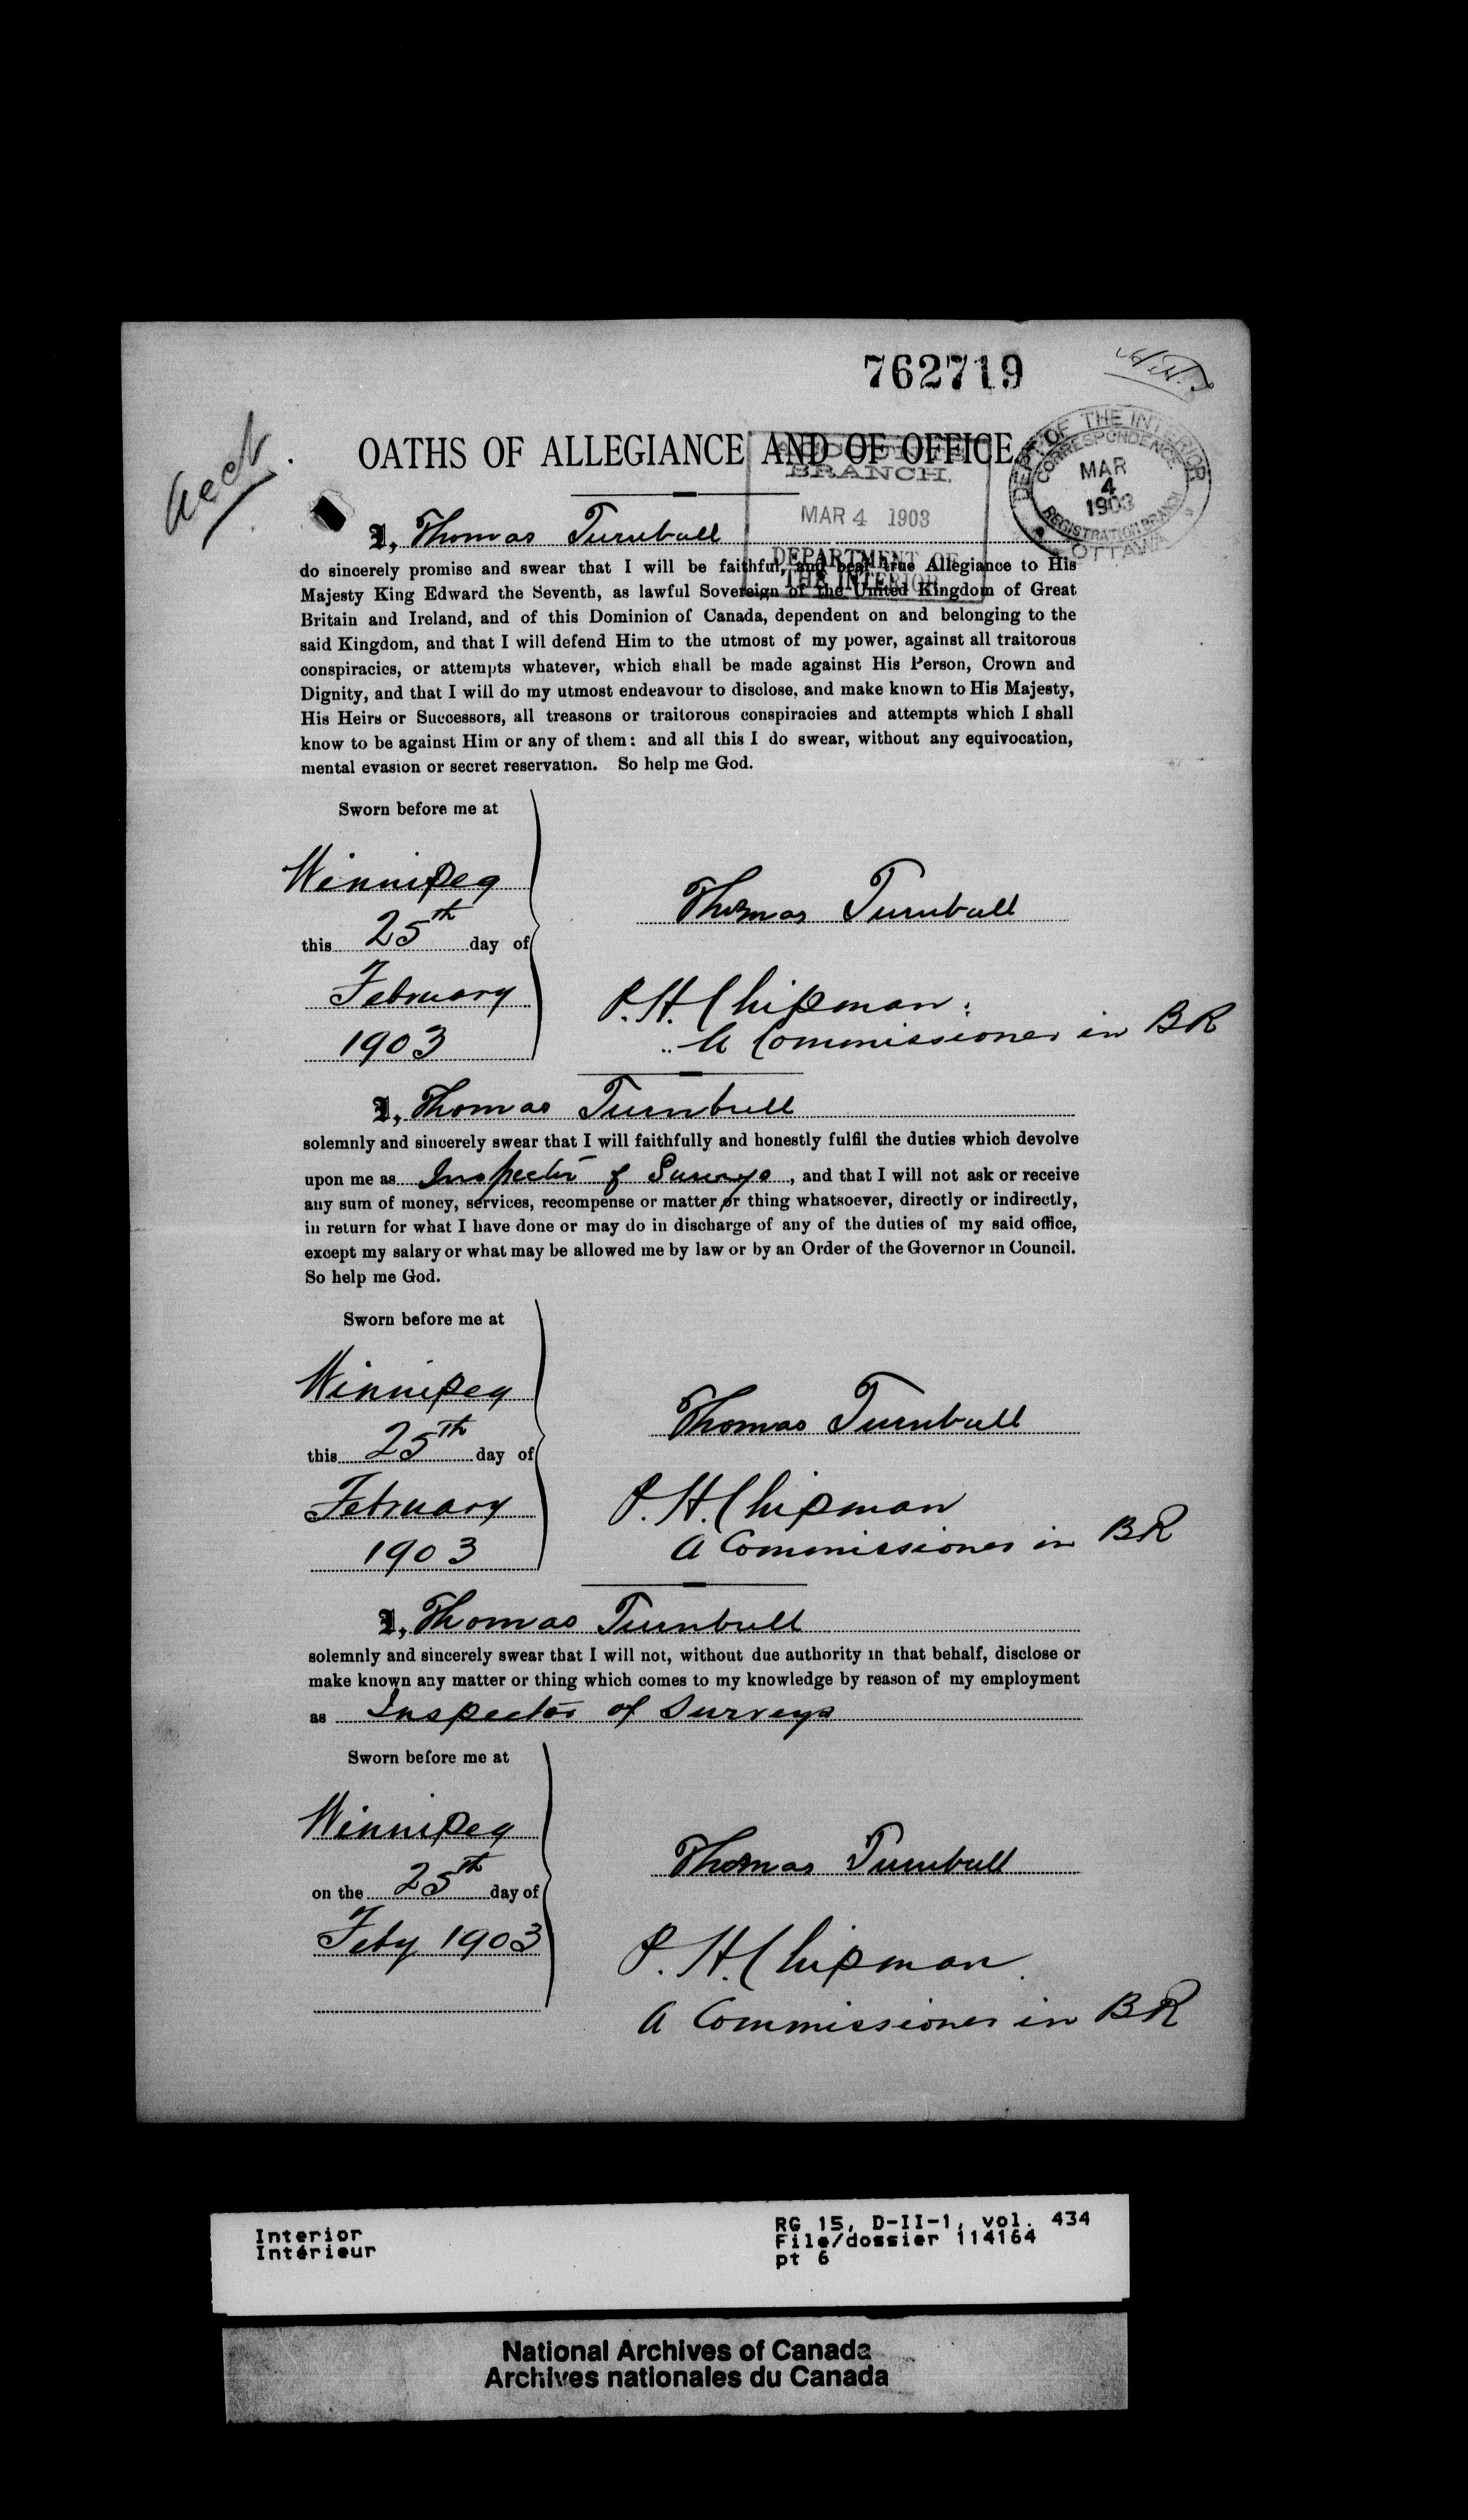 762719
Acct.
OATHS OF ALLEGIANCE AND OF OFFICE.
BRANCH.
MAR 4 1903
DEPARTMENT OF
THE INTERIOR
DEPT. OF THE INTERIOR
CORRESPONDENCE
MAR
4
1903
REGISTRATION BRANCH
OTTAWA
I, Thomas Turnbull
do sincerely promise and swear that I will be faithful, and bear true Allegiance to His
Majesty King Edward the Seventh, as lawful Sovereign of the United Kingdom of Great
Britain and Ireland, and of this Dominion of Canada, dependent on and belonging to the
said Kingdom, and that I will defend Him to the utmost of my power, against all traitorous
conspiracies, or attempts whatever, which shall be made against His Person, Crown and
Dignity, and that I will do my utmost endeavour to disclose, and make known to His Majesty,
His Heirs or Successors, all treasons or traitorous conspiracies and attempts which I shall
know to be against Him or any of them: and all this I do swear, without any equivocation,
mental evasion or secret reservation. So help me God.
Sworn before me at
Winnipeg
this 25th day of
February
1903
Thomas Turnbull
P. H. Chipman.
A Commissioner in BR
I, Thomas Turnbull
solemnly and sincerely swear that I will faithfully and honestly fulfil the duties which devolve
upon me as Inspector of Surveys, and that I will not ask or receive
any sum of money, services, recompense or matter or thing whatsoever, directly or indirectly,
in return for what I have done or may do in discharge of any of the duties of my said office,
except my salary or what may be allowed me by law or by an Order of the Governor in Council.
So help me God.
Sworn before me at
Winnipeg
this 25th day of
February
1903
Thomas Turnbull
P. H. Chipman
A Commissioner in BR
I, Thomas Turnbull
solemnly and sincerely swear that I will not, without due authority in that behalf, disclose or
make known any matter or thing which comes to my knowledge by reason of my employment
as Inspector of Surveys
Sworn before me at
Winnipeg
on the 25th day of
Feby 1903
Thomas Turnbull
P. H. Chipman
A Commissioner in BR
Interior
Intérieur
RG 15, D-II-1, vol. 434
File/dossier 114164
pt 6
National Archives of Canada
Archives nationales du Canada